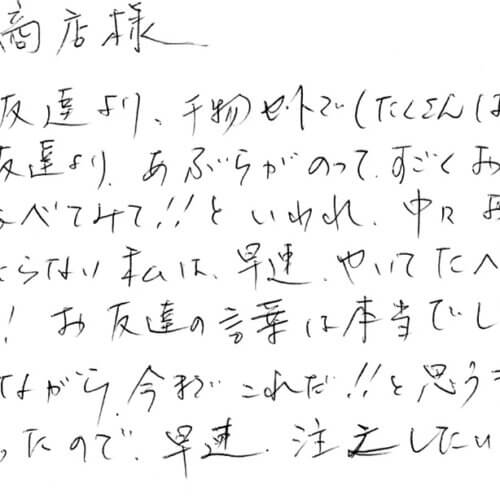 商店様
友達より、干物セットで(たくさんは
友達より、あぶらがのって、すごくお
べてみて!!といわれ、中に
らない私は、早速、やいてたべ
!お友達の言葉は本当でし
ながら、今までこれだ!!と思う
ったので、早速、注文したい